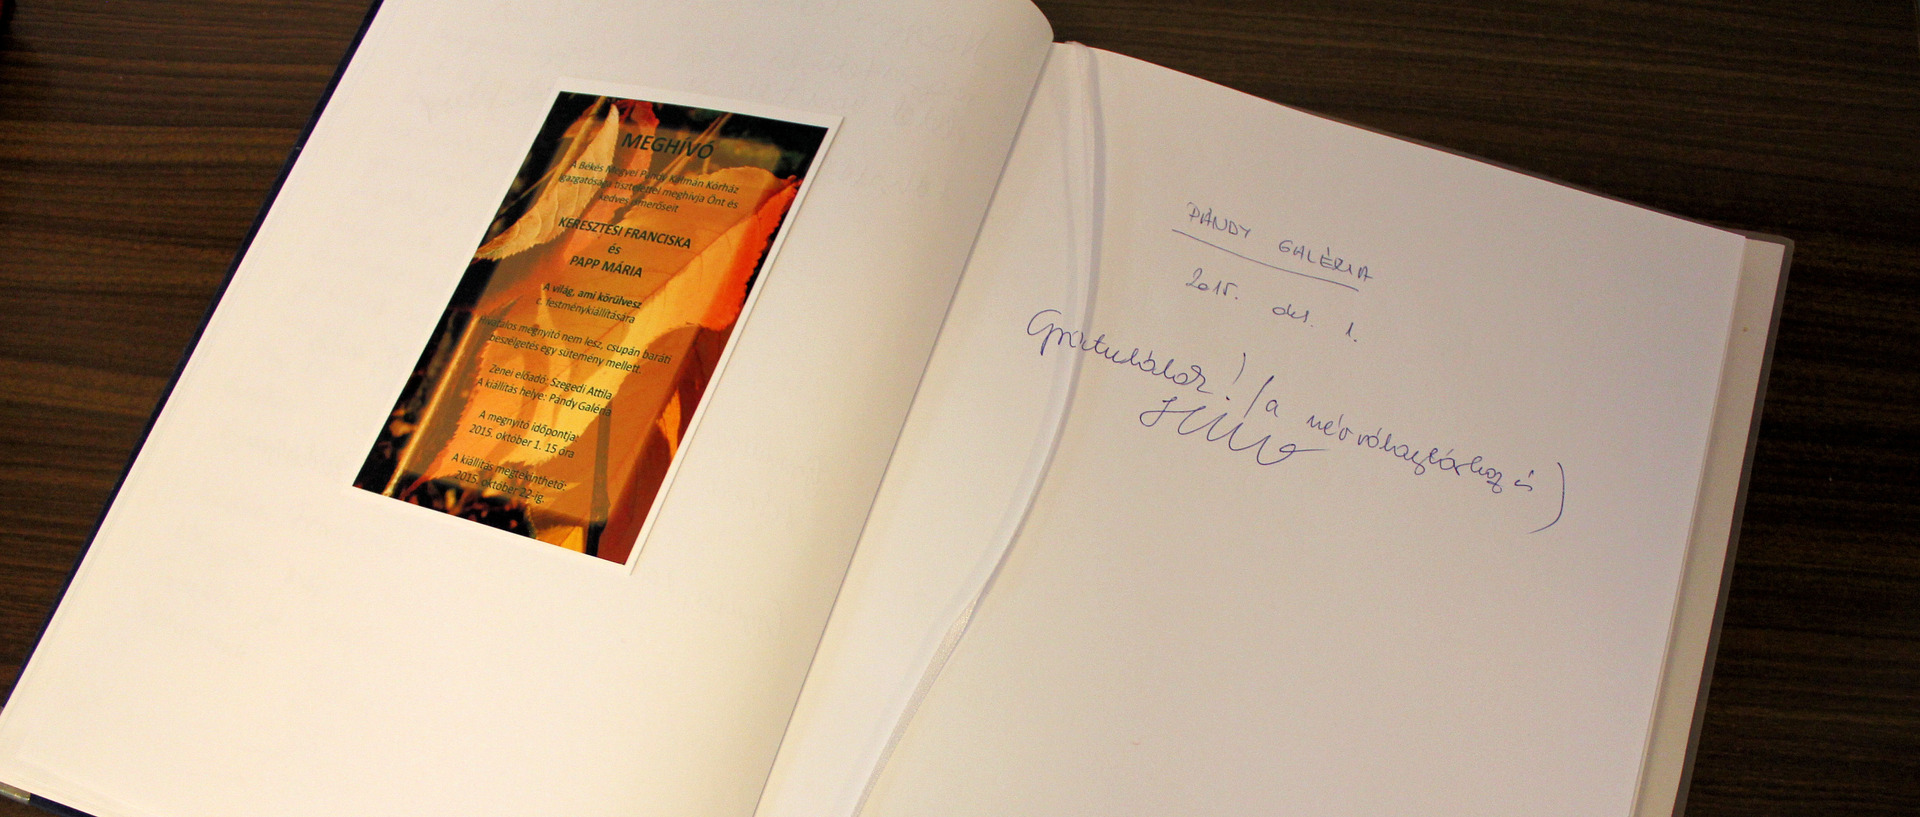 MEGHÍVÓ
A Békés Megyei Pándy Kálmán Kórház
igazgatósága tisztelettel meghívja Önt és
kedves ismerőseit
KERESZTESI FRANCISKA
és
PAPP MÁRIA
A világ, ami körülvesz
c. festménykiállítására
Hivatalos megnyitó nem lesz, csupán baráti
beszélgetés egy sütemény mellett.
Zenei előadó: Szegedi Attila
A kiállítás helye: Pándy Galéria
A megnyitó időpontja:
2015. október 1. 15 óra
A kiállítás megtekinthető:
2015. október 22-ig.
PÁNDY GALÉRIA
2015. okt. 1.
Gratulálok! (a névválasztáshoz is)